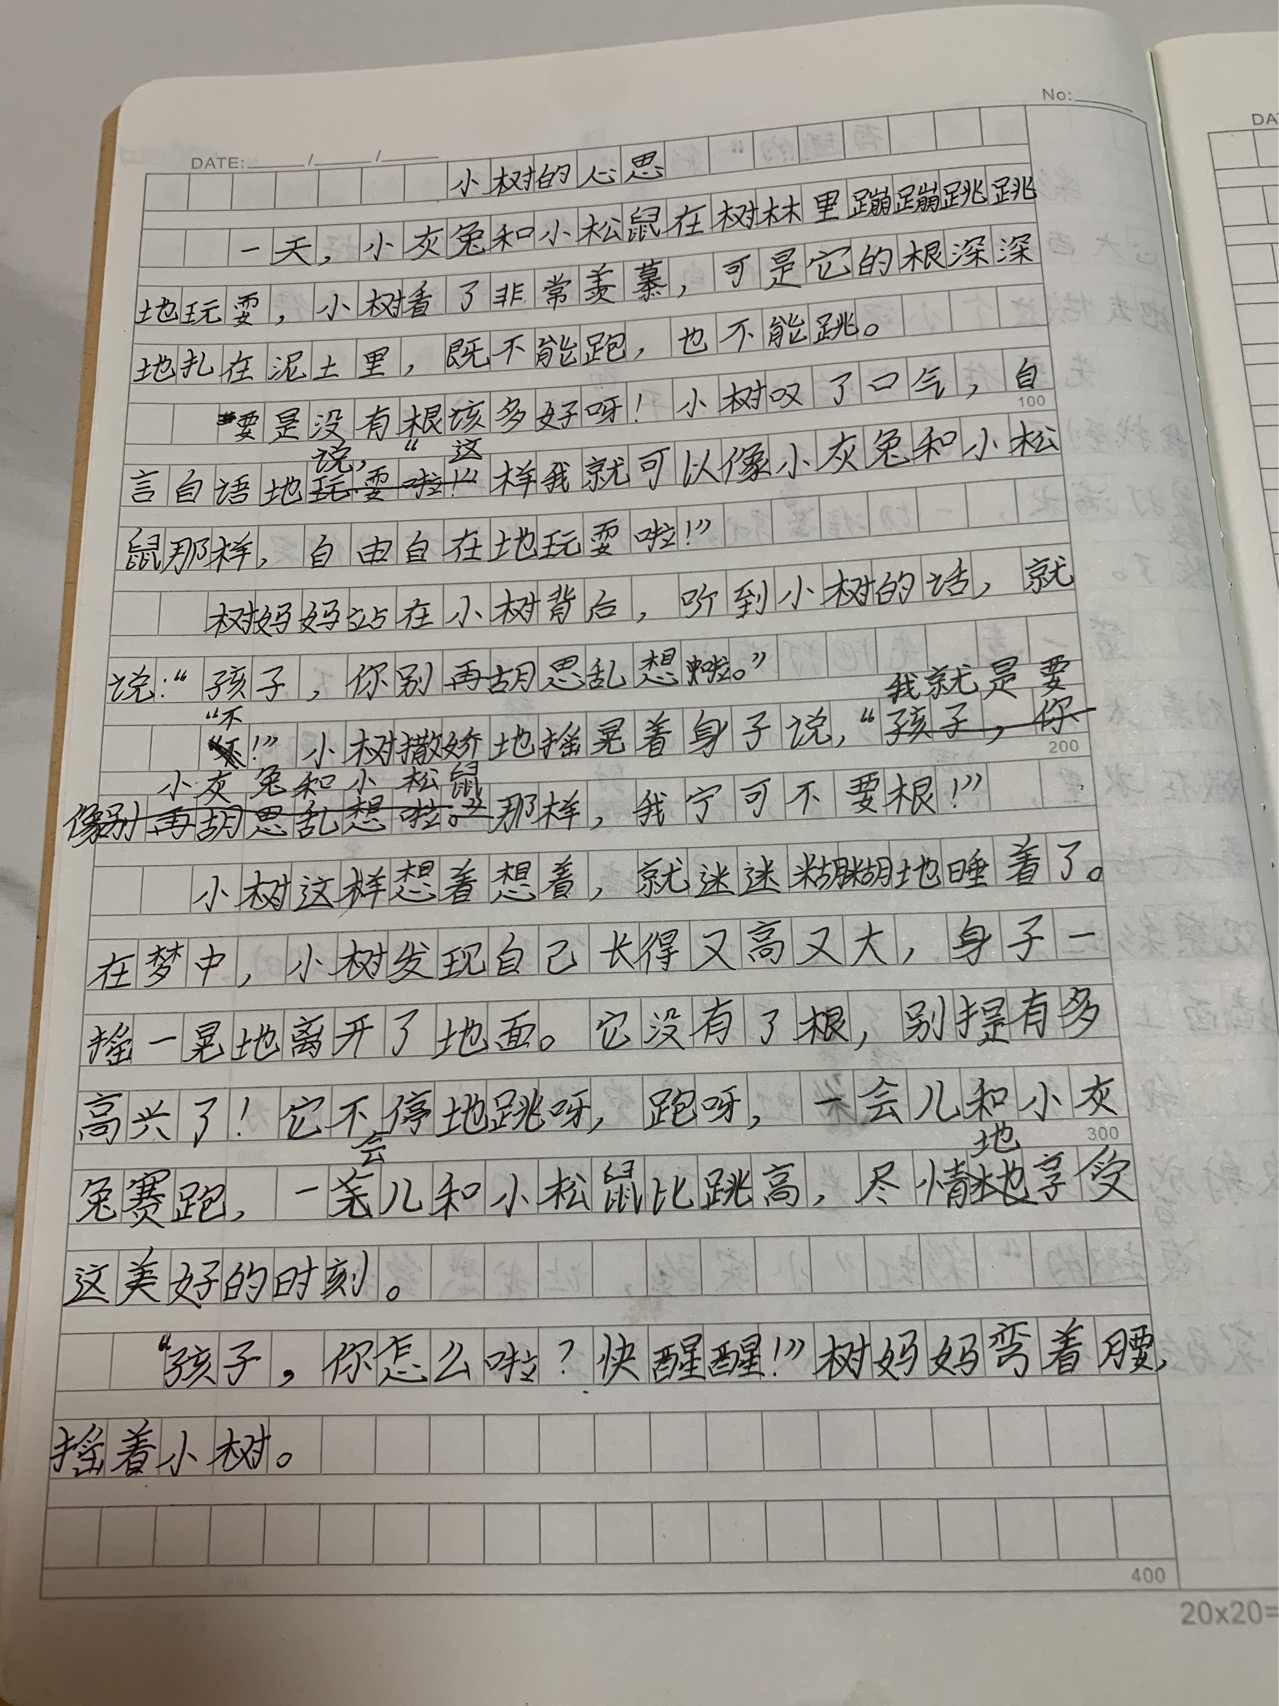 No:
DATE: / /
小树的心思
一天，小灰兔和小松鼠在树林里蹦蹦跳跳
地玩耍，小树看了非常羡慕，可是它的根深深
地扎在泥土里，既不能跑，也不能跳。
“要是没有根该多好呀！小树叹了口气，自
100
说，“这
言自语地玩耍啦！”样我就可以像小灰兔和小松
鼠那样，自由自在地玩耍啦！”
树妈妈站在小树背后，听到小树的话，就
说：“孩子，你别再胡思乱想啦。”
我就是要
“不
！”小树撒娇地摇晃着身子说，“孩子，你
200
小灰兔和小松鼠
像别再胡思乱想啦。”那样，我宁可不要根！”
小树这样想着想着，就迷迷糊糊地睡着了。
在梦中，小树发现自己长得又高又大，身子一
摇一晃地离开了地面。它没有了根，别提有多
高兴了！它不停地跳呀，跑呀，一会儿和小灰
300
会
地
兔赛跑，一儿和小松鼠比跳高，尽情地享受
这美好的时刻。
“孩子，你怎么啦？快醒醒！”树妈妈弯着腰，
摇着小树。
400
20x20=
DA